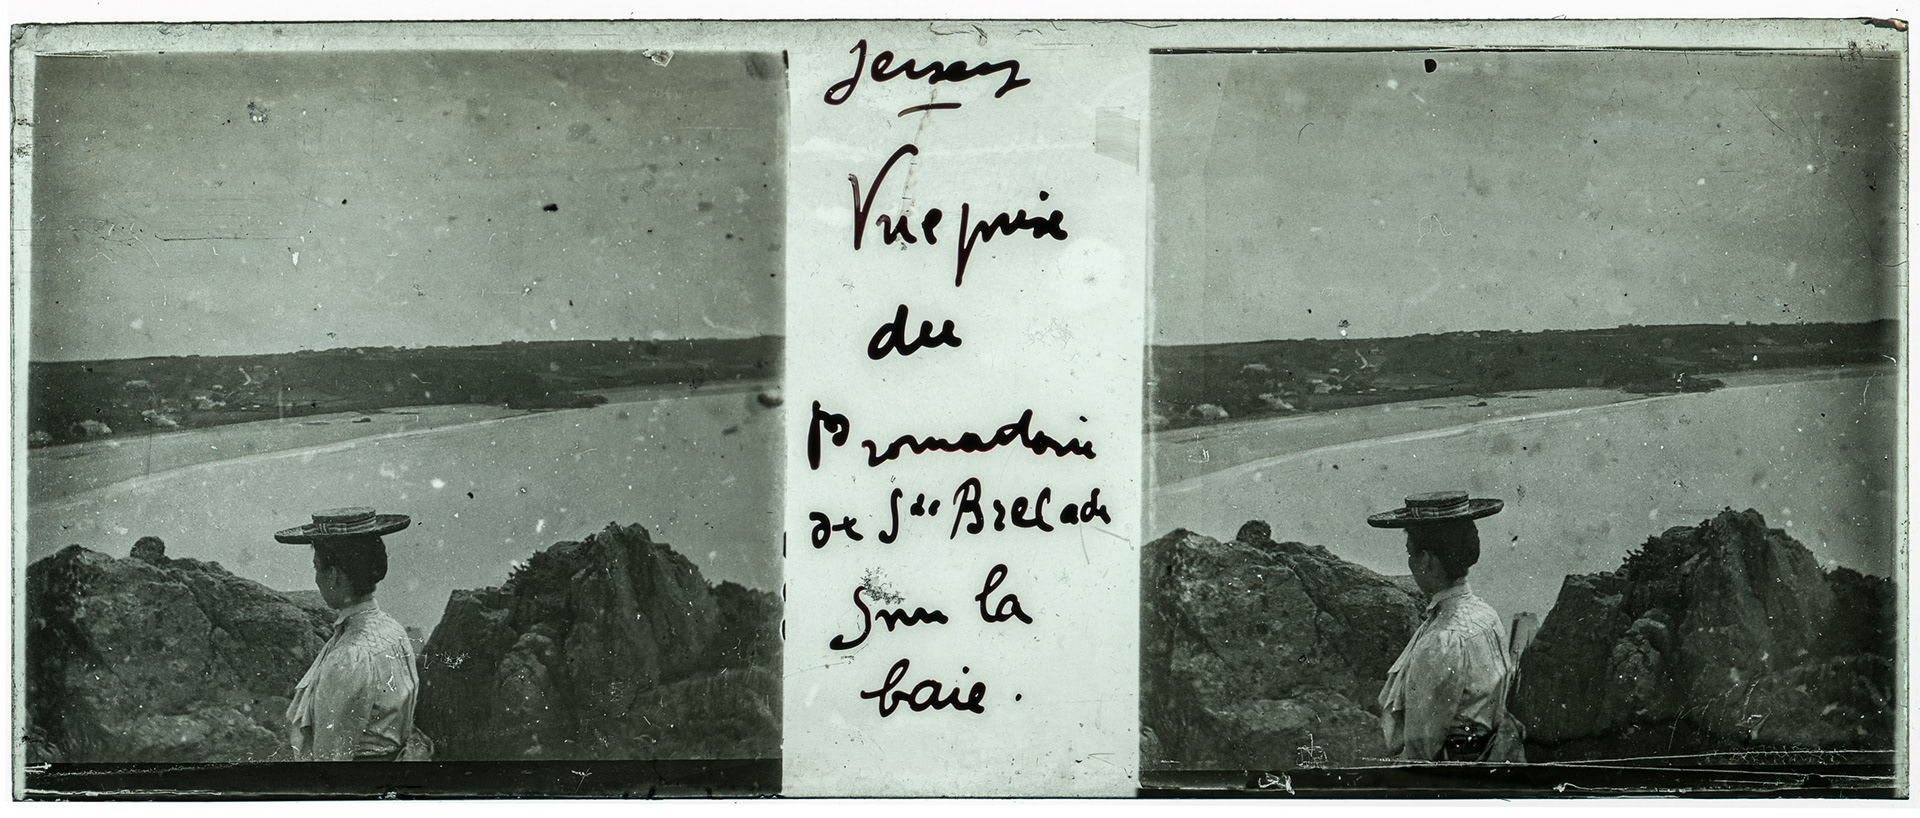 Jersey
Vue prise
du
Promadoire
de Ste Brelade
Sur la
baie.